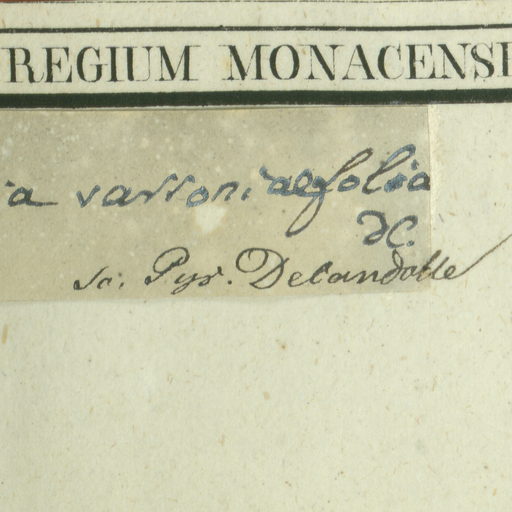 REGIUM MONACENSE
ia sassoniaefolia
DC.
sc: Pyr. Decandolle